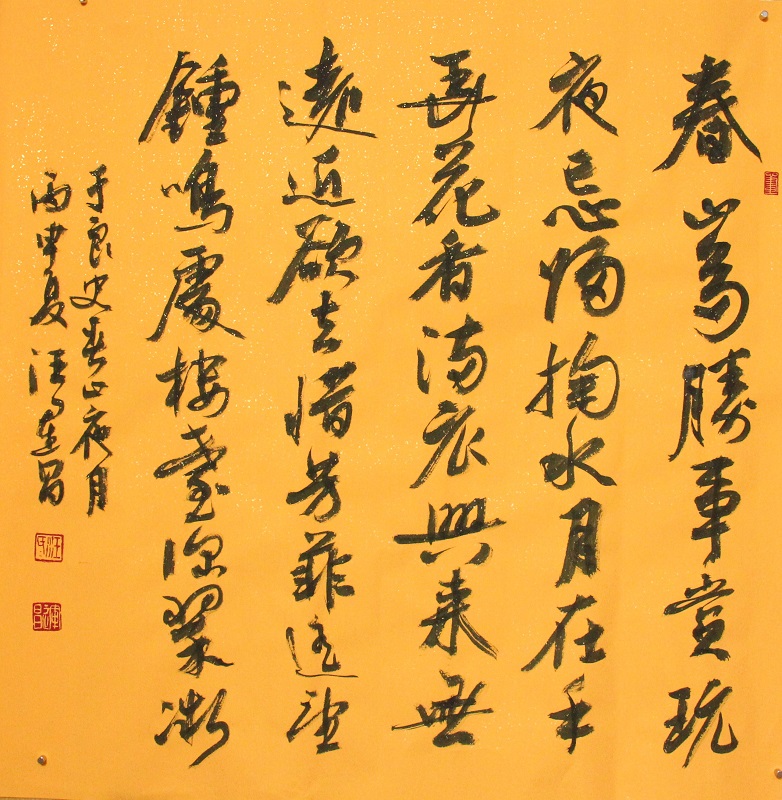 春山多勝事賞玩
夜忘歸掬水月在手
弄花香滿衣興来無
遠近欲去惜芳菲遥望
鍾鳴處樓臺深翠微
于良史春山夜月
丙申夏汪運昌